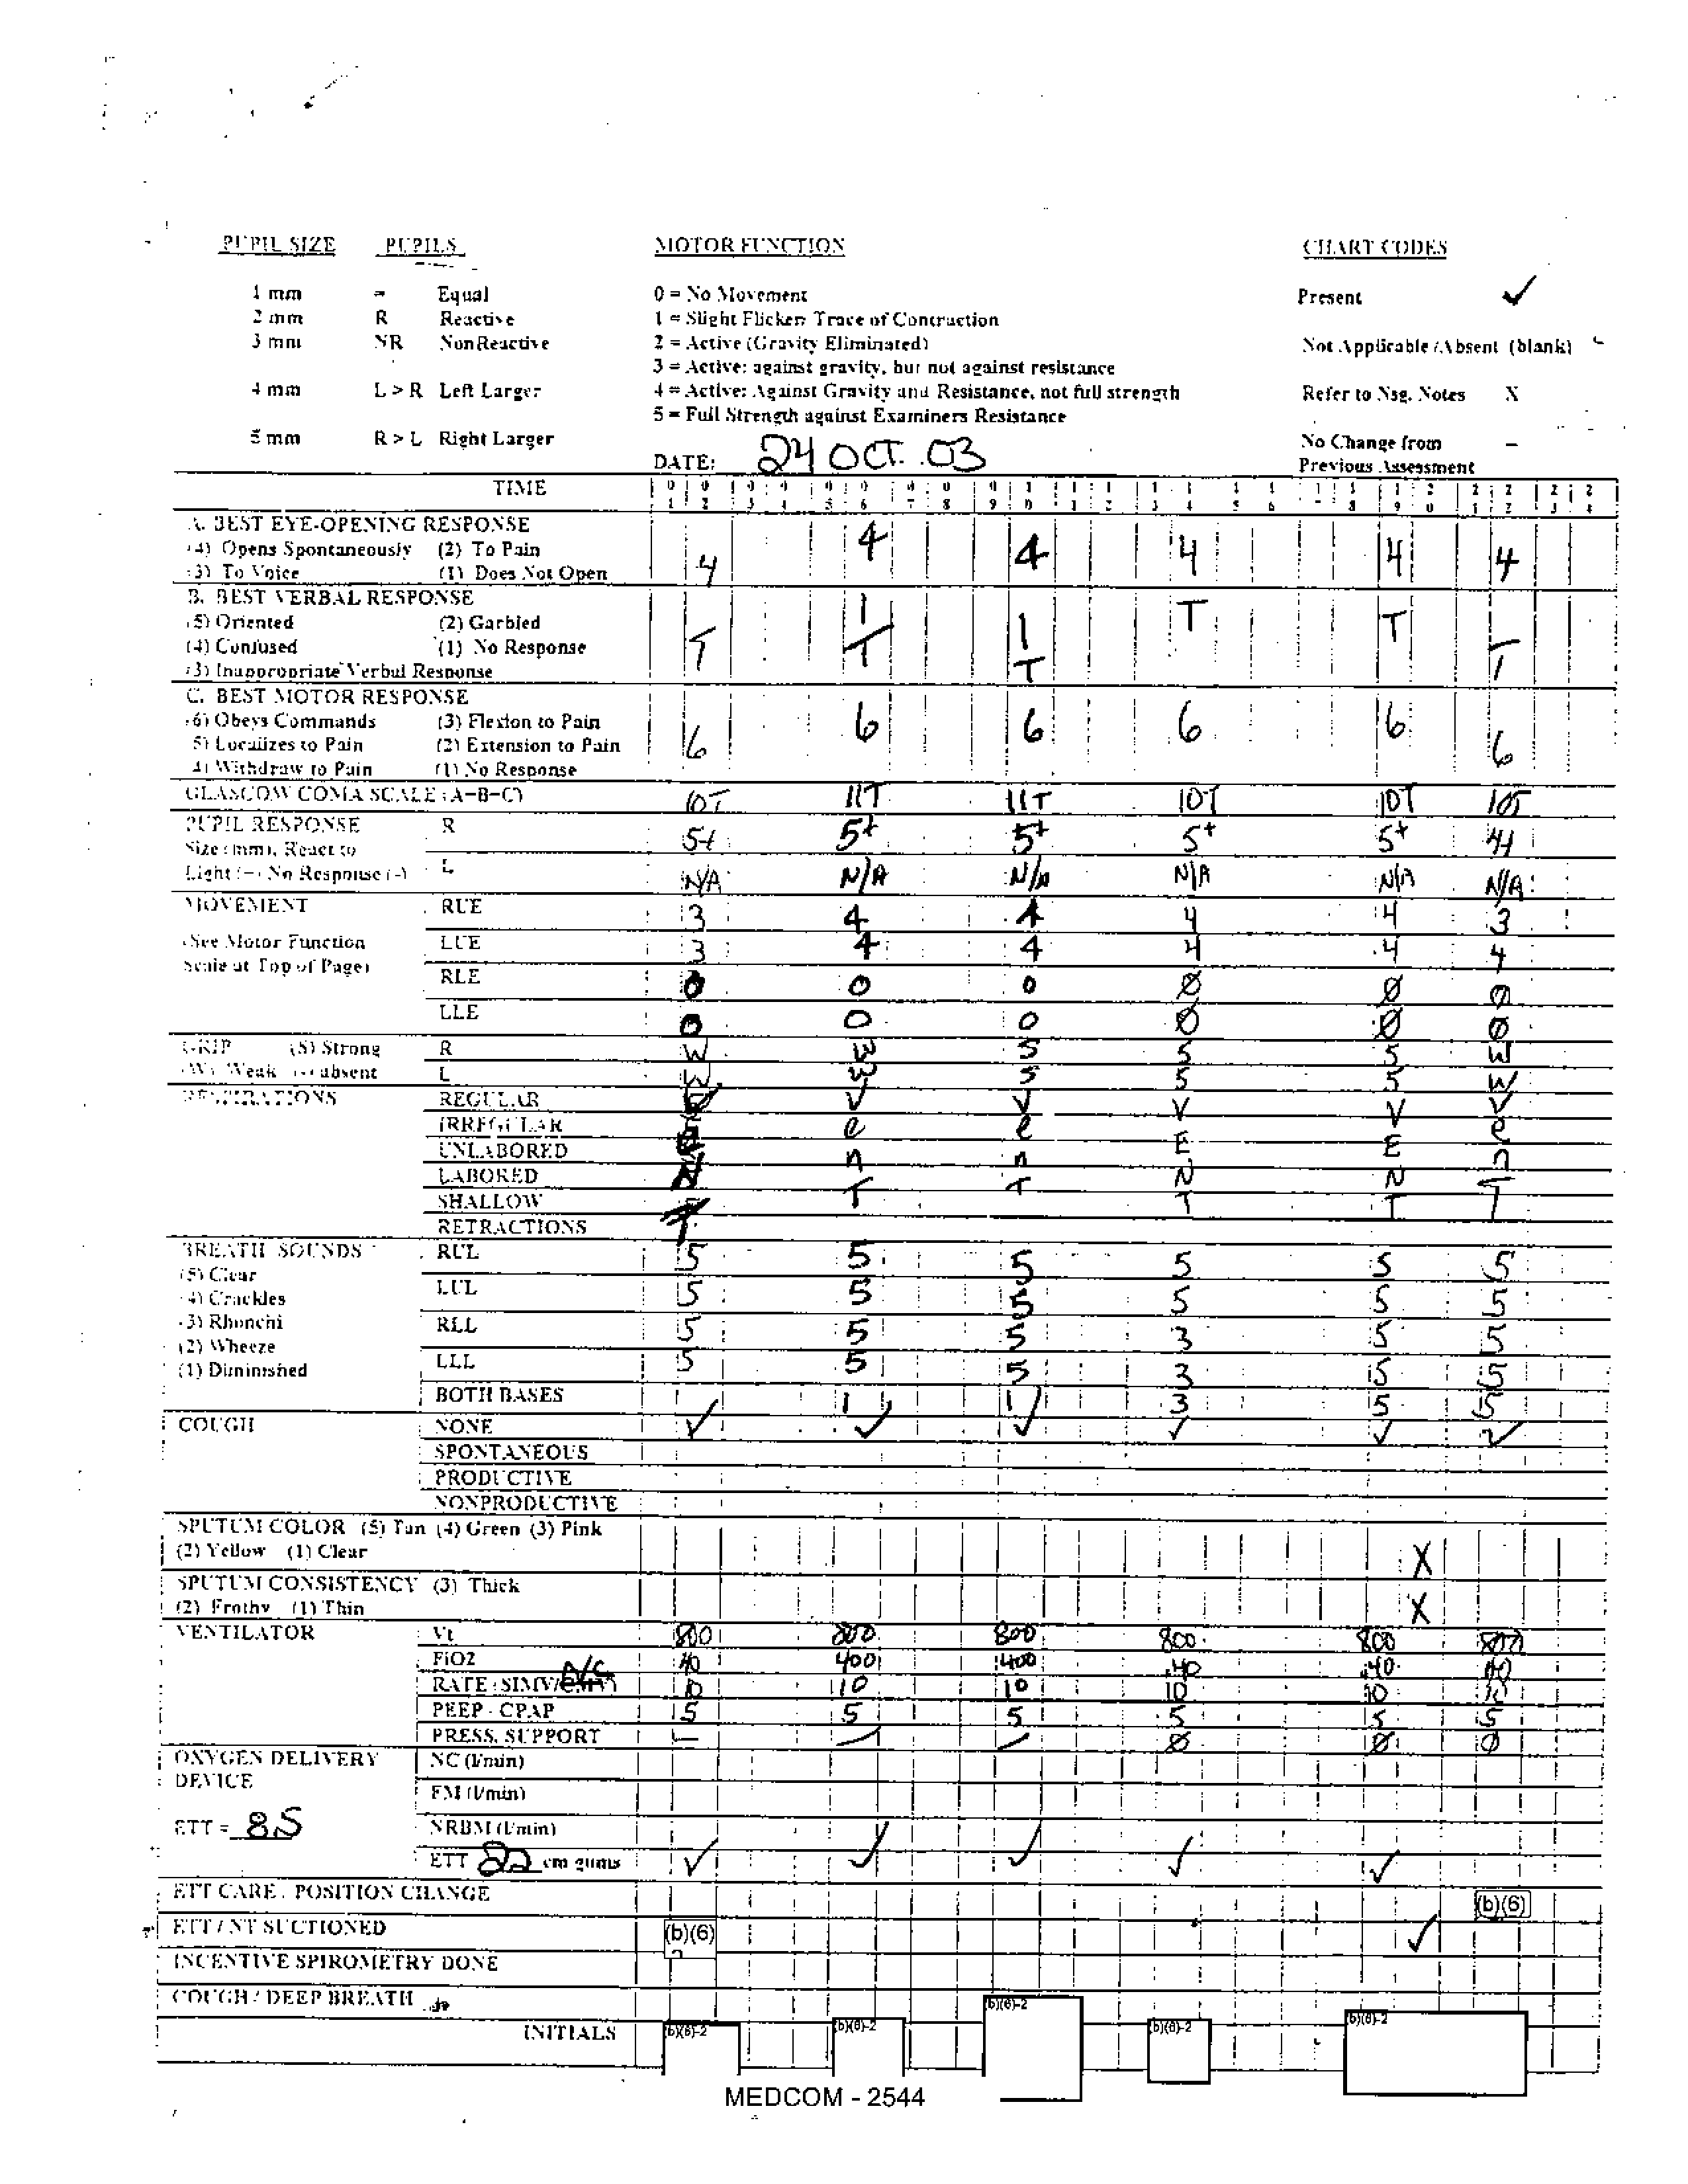 PUPIL SIZE PUPILS MOTOR FUNCTION CHART CODES
1 mm = Equal 0 = No Movement Present ✓
2 mm R Reactive 1 = Slight Flicker: Trace of Contraction
3 mm NR NonReactive 2 = Active (Gravity Eliminated) Not Applicable/Absent (blank)
3 = Active: against gravity, but not against resistance
4 mm L > R Left Larger 4 = Active: Against Gravity and Resistance, not full strength Refer to Nsg. Notes X
5 = Full Strength against Examiners Resistance
5 mm R > L Right Larger No Change from –
DATE: 24 OCT. 03 Previous Assessment
TIME 01 02 03 04 05 06 07 08 09 10 11 12 13 14 15 16 17 18 19 20 21 22 23 24
A. BEST EYE-OPENING RESPONSE
(4) Opens Spontaneously (2) To Pain 4 4 4 4 4 4
(3) To Voice (1) Does Not Open
B. BEST VERBAL RESPONSE
(5) Oriented (2) Garbled 1 1 T T
(4) Confused (1) No Response T T T T
(3) Inappropriate Verbal Response
C. BEST MOTOR RESPONSE
(6) Obeys Commands (3) Flexion to Pain 6 6 6 6 6 6
(5) Localizes to Pain (2) Extension to Pain
(4) Withdraw to Pain (1) No Response
GLASCOW COMA SCALE (A-B-C) 10T 11T 11T 10T 10T 10T
PUPIL RESPONSE R 5+ 5+ 5+ 5+ 5+ 4+
Size (mm), React to
Light (+) No Response (-) L N/A N/A N/A N/A N/A N/A
MOVEMENT RUE 3 4 4 4 4 3
(See Motor Function LUE 3 4 4 4 4 4
Scale at Top of Page) RLE 0 0 0 Ø Ø Ø
LLE 0 0 0 Ø Ø Ø
GRIP (S) Strong R W W S S S W
(W) Weak (-) absent L W W S S S W
RESPIRATIONS REGULAR V V V V V V
IRREGULAR e e E E e
UNLABORED
LABORED N n n N N n
SHALLOW T T T T T T
RETRACTIONS
BREATH SOUNDS RUL 5 5 5 5 5 5
(5) Clear LUL 5 5 5 5 5 5
(4) Crackles
(3) Rhonchi RLL 5 5 5 3 5 5
(2) Wheeze
(1) Diminished LLL 5 5 5 3 5 5
BOTH BASES 1 1 3 5 5
COUGH NONE ✓ ✓ ✓ ✓ ✓ ✓
SPONTANEOUS
PRODUCTIVE
NONPRODUCTIVE
SPUTUM COLOR (5) Tan (4) Green (3) Pink
(2) Yellow (1) Clear X
SPUTUM CONSISTENCY (3) Thick
(2) Frothy (1) Thin X
VENTILATOR Vt 800 800 800 800 800 800
FiO2 40 400 400 .40 .40 40
RATE: SIMV/ A/C 10 10 10 10 10 10
PEEP - CPAP 5 5 5 5 5 5
PRESS. SUPPORT – – – Ø Ø Ø
OXYGEN DELIVERY NC (l/min)
DEVICE
FM (l/min)
ETT = 8.5 NRBM (l/min)
ETT 22 cm gums ✓ ✓ ✓ ✓ ✓
ETT CARE: POSITION CHANGE (b)(6)
ETT / NT SUCTIONED (b)(6) ✓
INCENTIVE SPIROMETRY DONE
COUGH / DEEP BREATH
INITIALS (b)(6)-2 (b)(6)-2 (b)(6)-2 (b)(6)-2 (b)(6)-2
MEDCOM - 2544